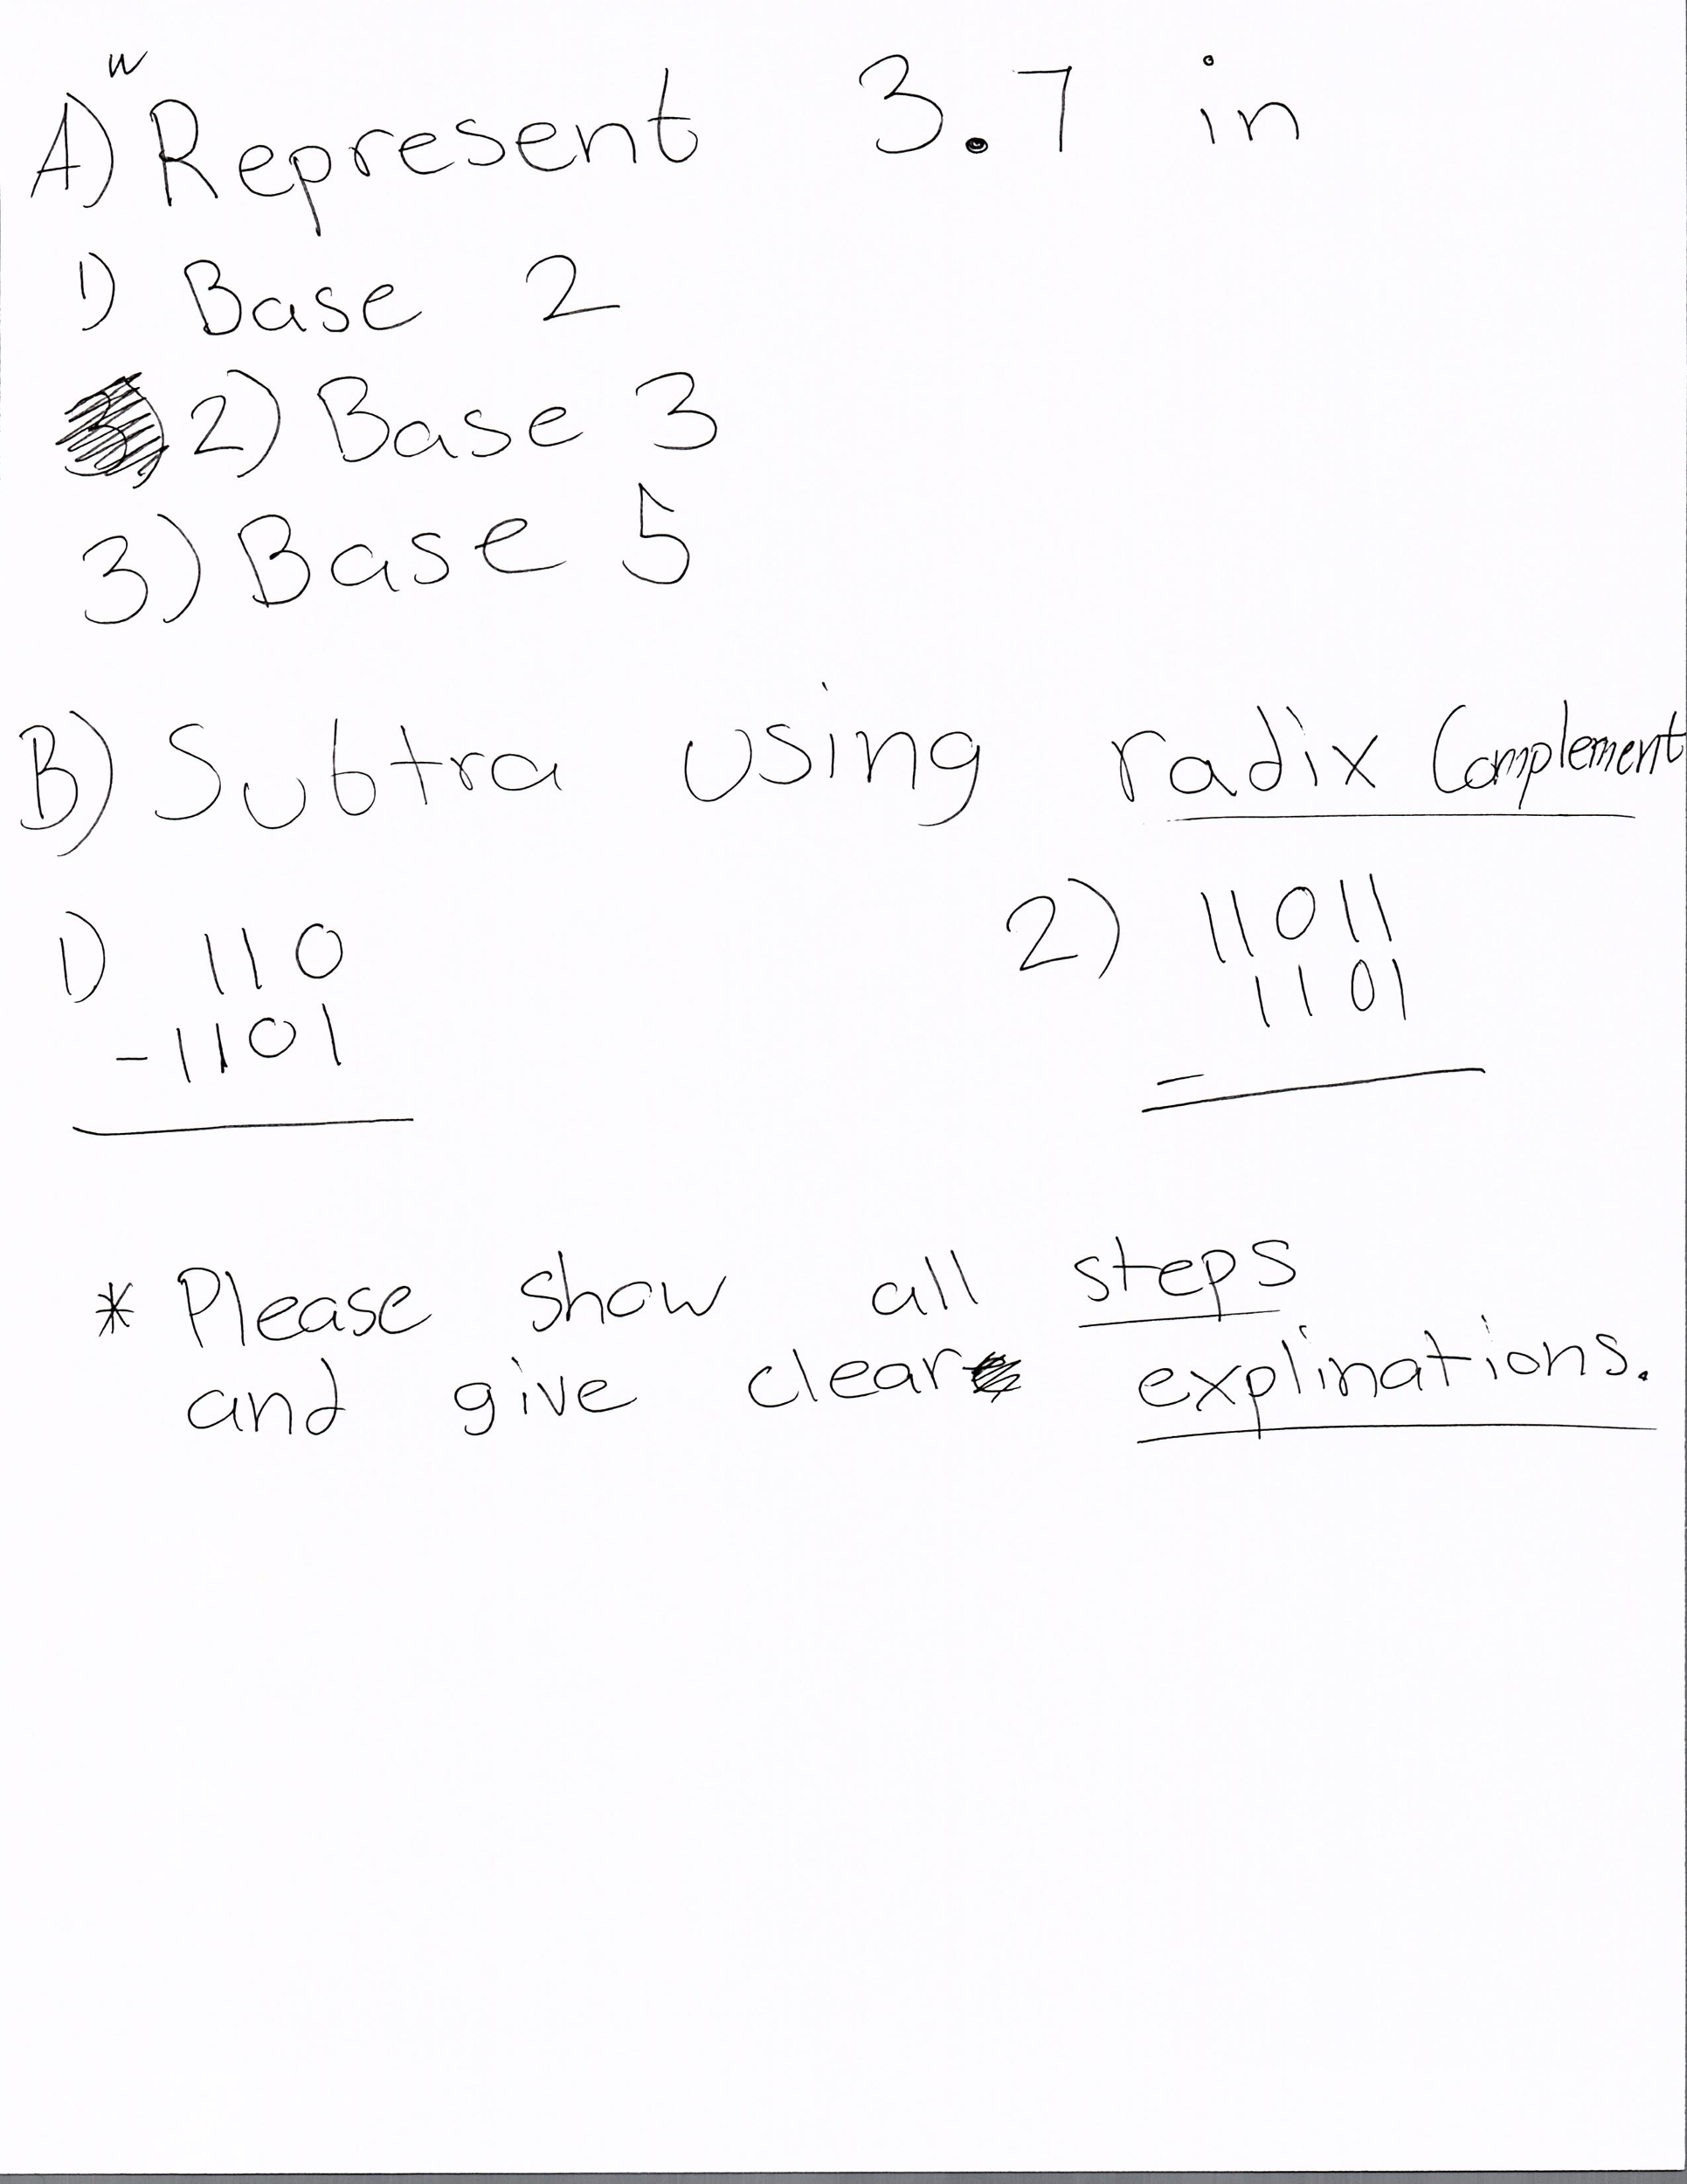 w
A) Represent 3.7 in
1) Base 2
2) Base 3
3) Base 5
B) Subtra using radix Complement
1) 110
-1101
2) 11011
1101
-
* Please show all steps
and give clear explinations.